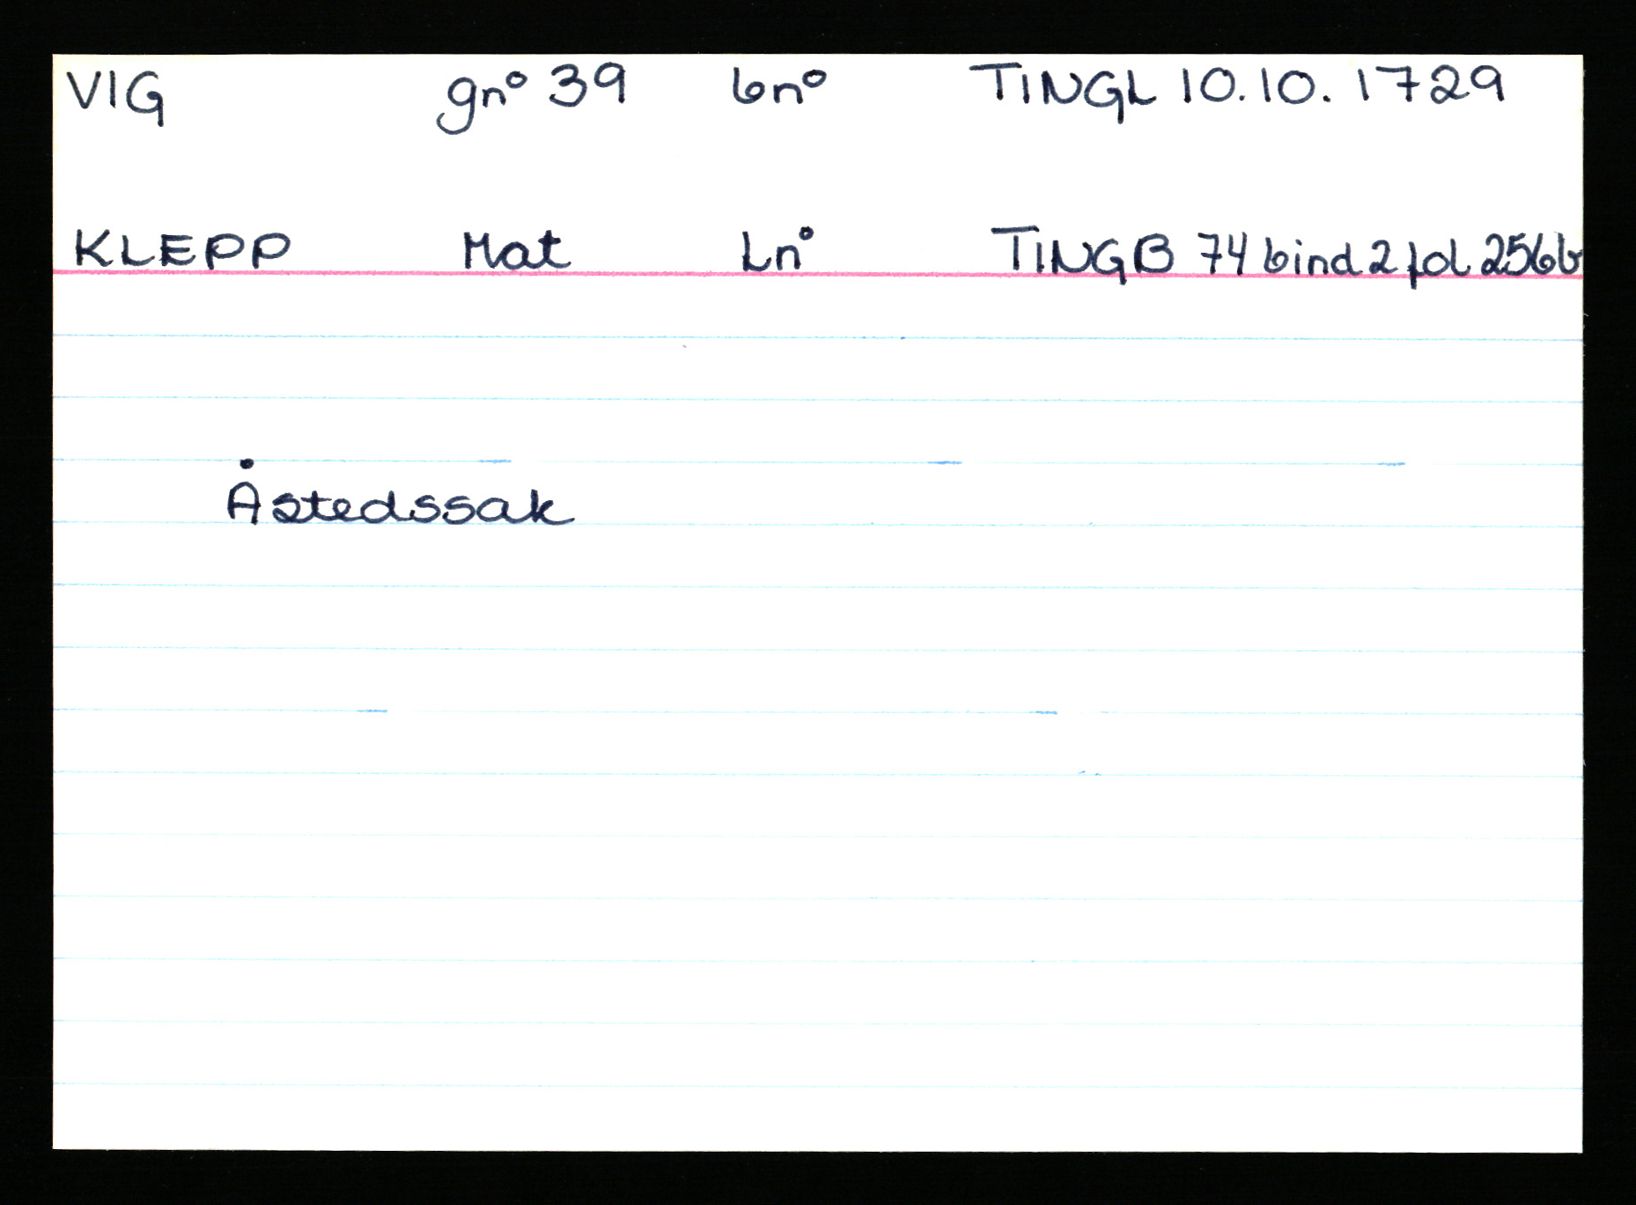 VIG gn° 39 bn° TINGL 10.10. 1729
KLEPP Mat Ln° TINGB 74 bind 2 fol 256b
Åstedssak